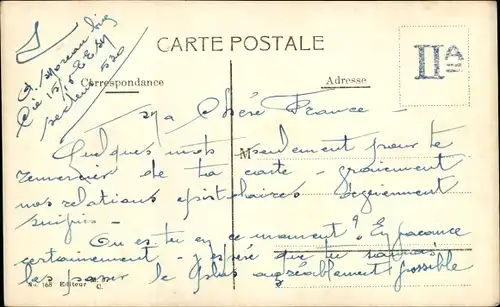 CARTE POSTALE
Correspondance
Adresse
IIA
Moreau
secteur 520
Ma Chère France -
Quelques mots seulement pour te
remercier de ta carte -
nos relations épistolaires
suivies -
Où es-tu en ce moment ? En
certainement - j'espère que tu
les passer le plus agréablement possible
M
No. 168 Editeur C.